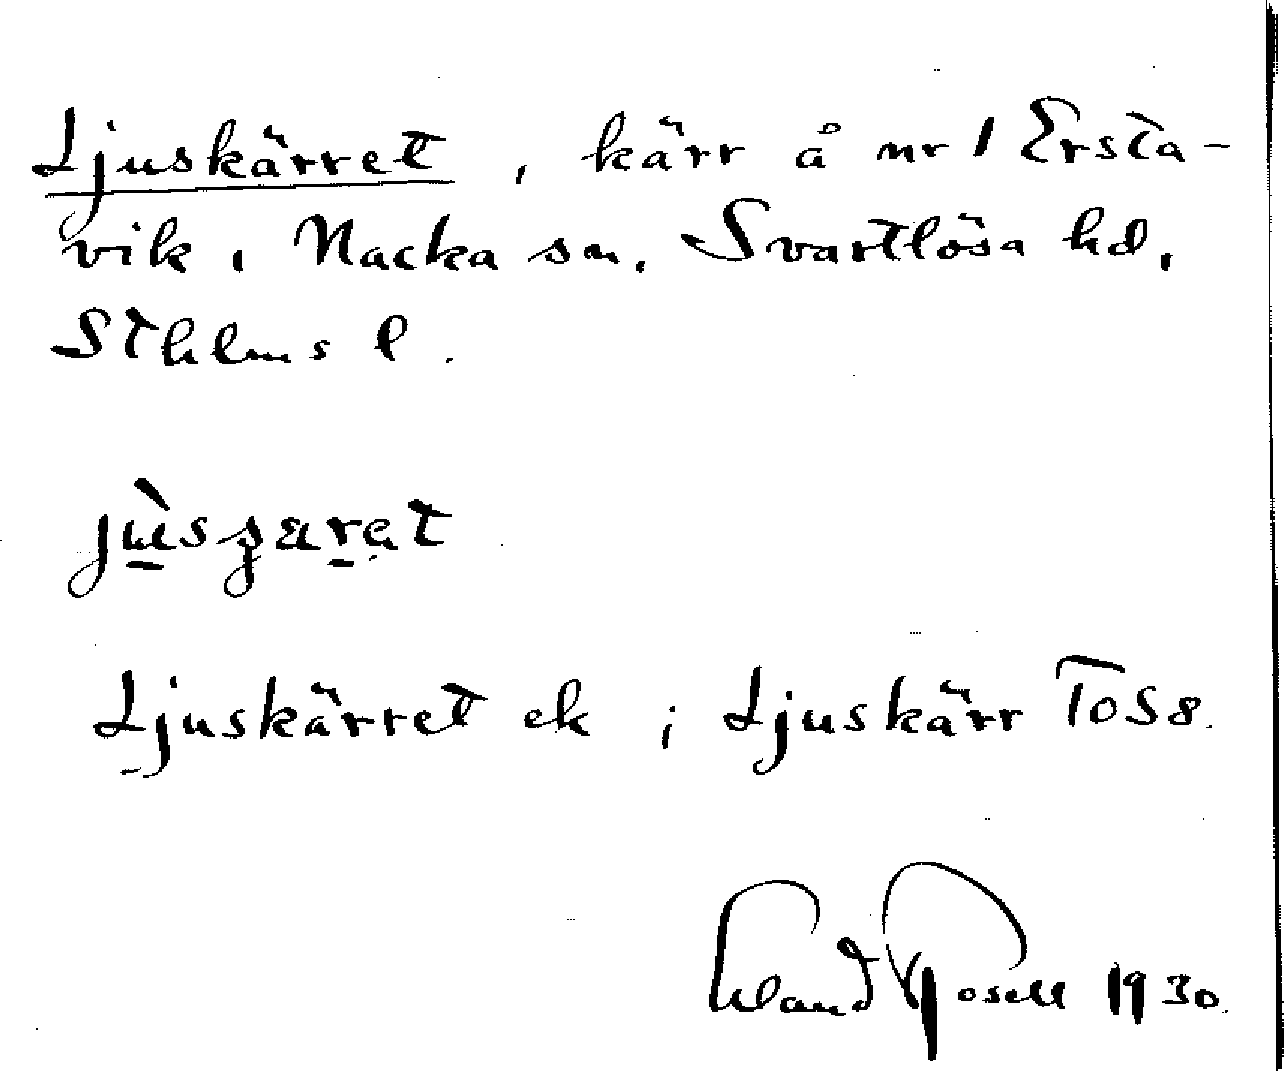 Ljuskärret, kärr å nr 1 Ersta-
vik, Nacka sn, Svartlösa hd,
Sthlms l.
Ljuskärret ek ; Ljuskärr To S8.
Erland Rosell 1930.